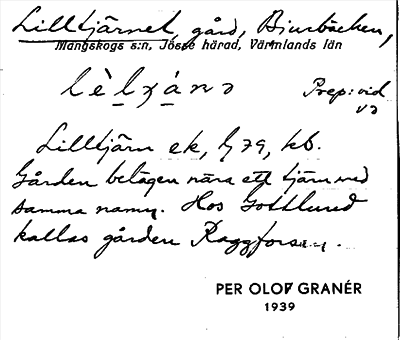 Lilltjärnet, gård, Bjurbäcken,
Mangskogs s:n, Jösse härad, Värmlands län
Prep: vid
Lilltjärn ek, kb.
Gården belägen nära ett tjärn med
samma namn. Hos Gottlund
kallas gården Raggforsen.
PER OLOF GRANÉR
1939